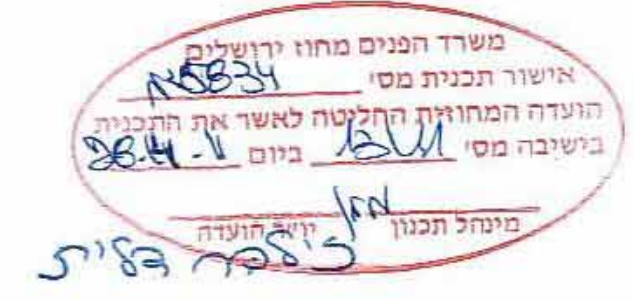 משרד הפנים מחוז ירושלים
אישור תכנית מס' 5834א
הועדה המחוזית החליטה לאשר את התכנית
בישיבה מס' ביום 28.4.11
מינהל תכנון יו"ר הועדה
דלית זילבר